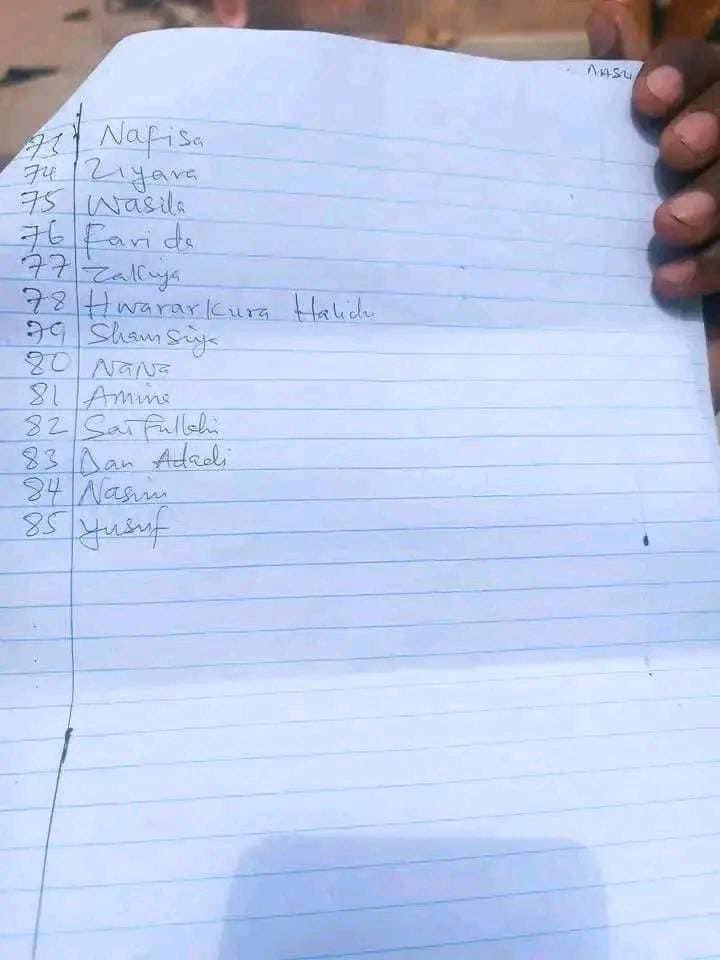 73 Nafisa
74 Ziyara
75 Wasila
76 Farida
77 Zakiya
78 Hwararkura Halidu
79 Shamsiya
80 NaNa
81 Amina
82 Saifullahi
83 Dan Adadi
84 Nasiru
85 Yusuf